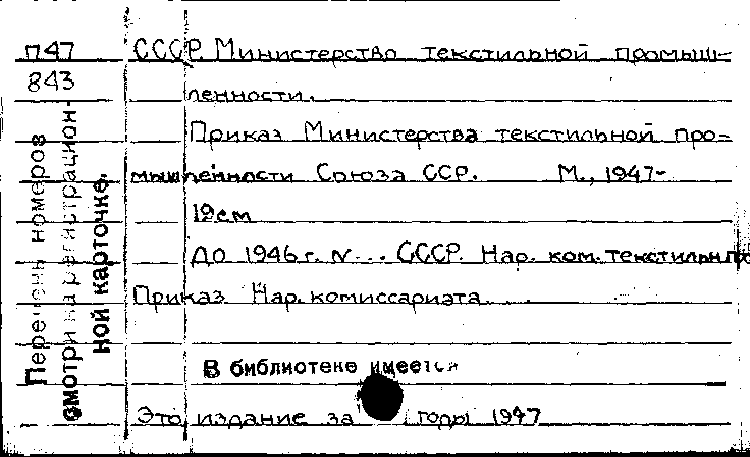 П47
843
СССР. Министерство текстильной промыш-
ленности.
Приказ Министерства текстильной про-
мышленности Союза ССР. М., 1947-
19см
До 1946 г. N ... СССР. Нар. ком. текстильн.
Приказ Нар. комиссариата
В библиотеке имеется
Это издание за годы 1947
Перечень номеров
смотри на регистрацион-
ной карточке.